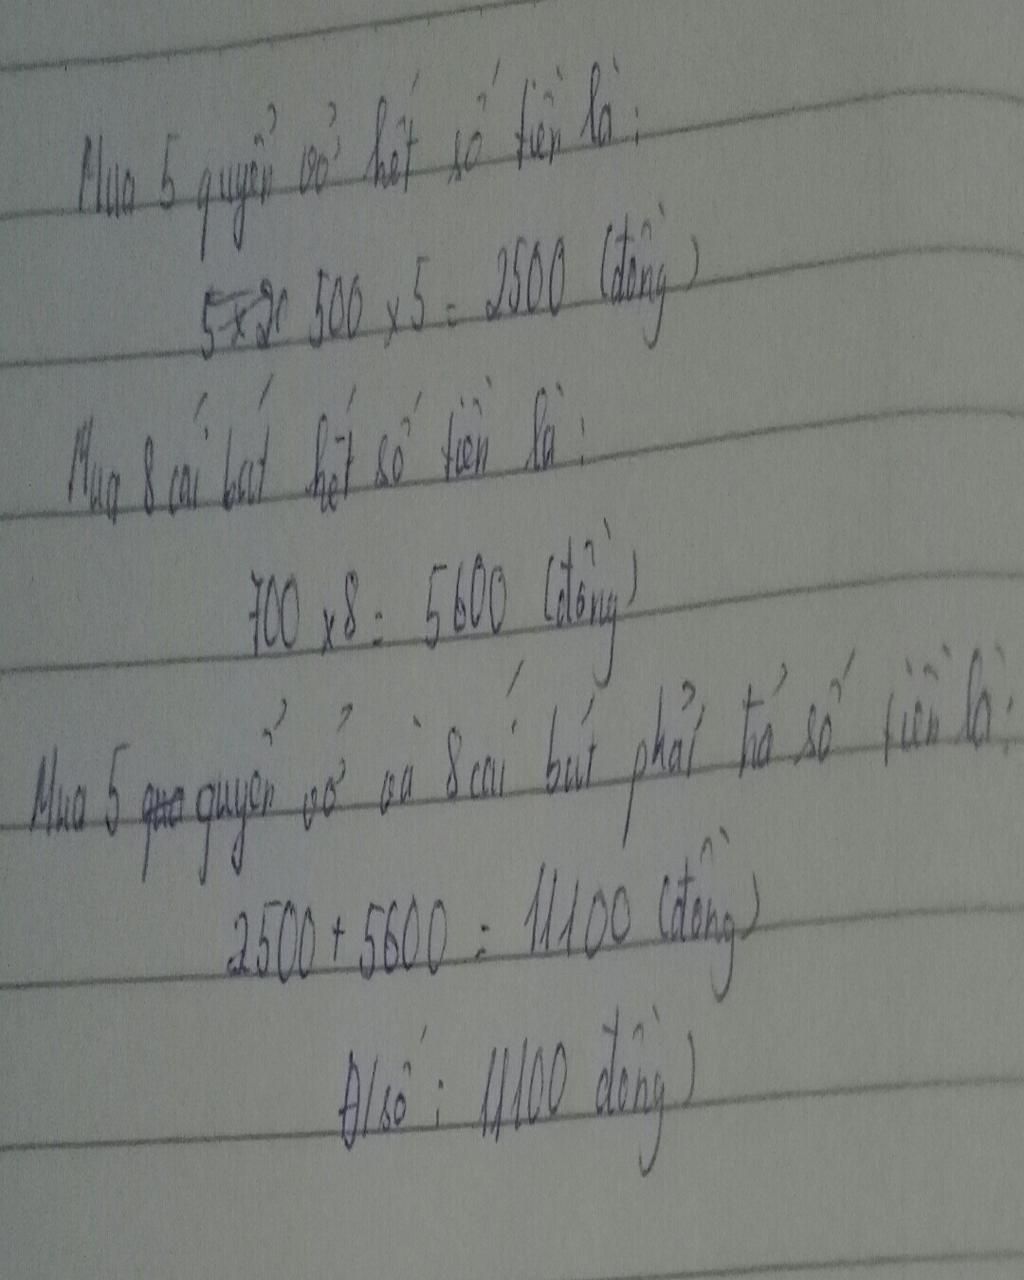 Mua 5 quyển vở hết số tiền là:
500 x 5 = 2500 (đồng)
Mua 8 cái bút hết số tiền là:
700 x 8 = 5600 (đồng)
Mua 5 quyển vở và 8 cái bút phải trả số tiền là:
2500 + 5600 = 11100 (đồng)
Đ/số: 11100 đồng)